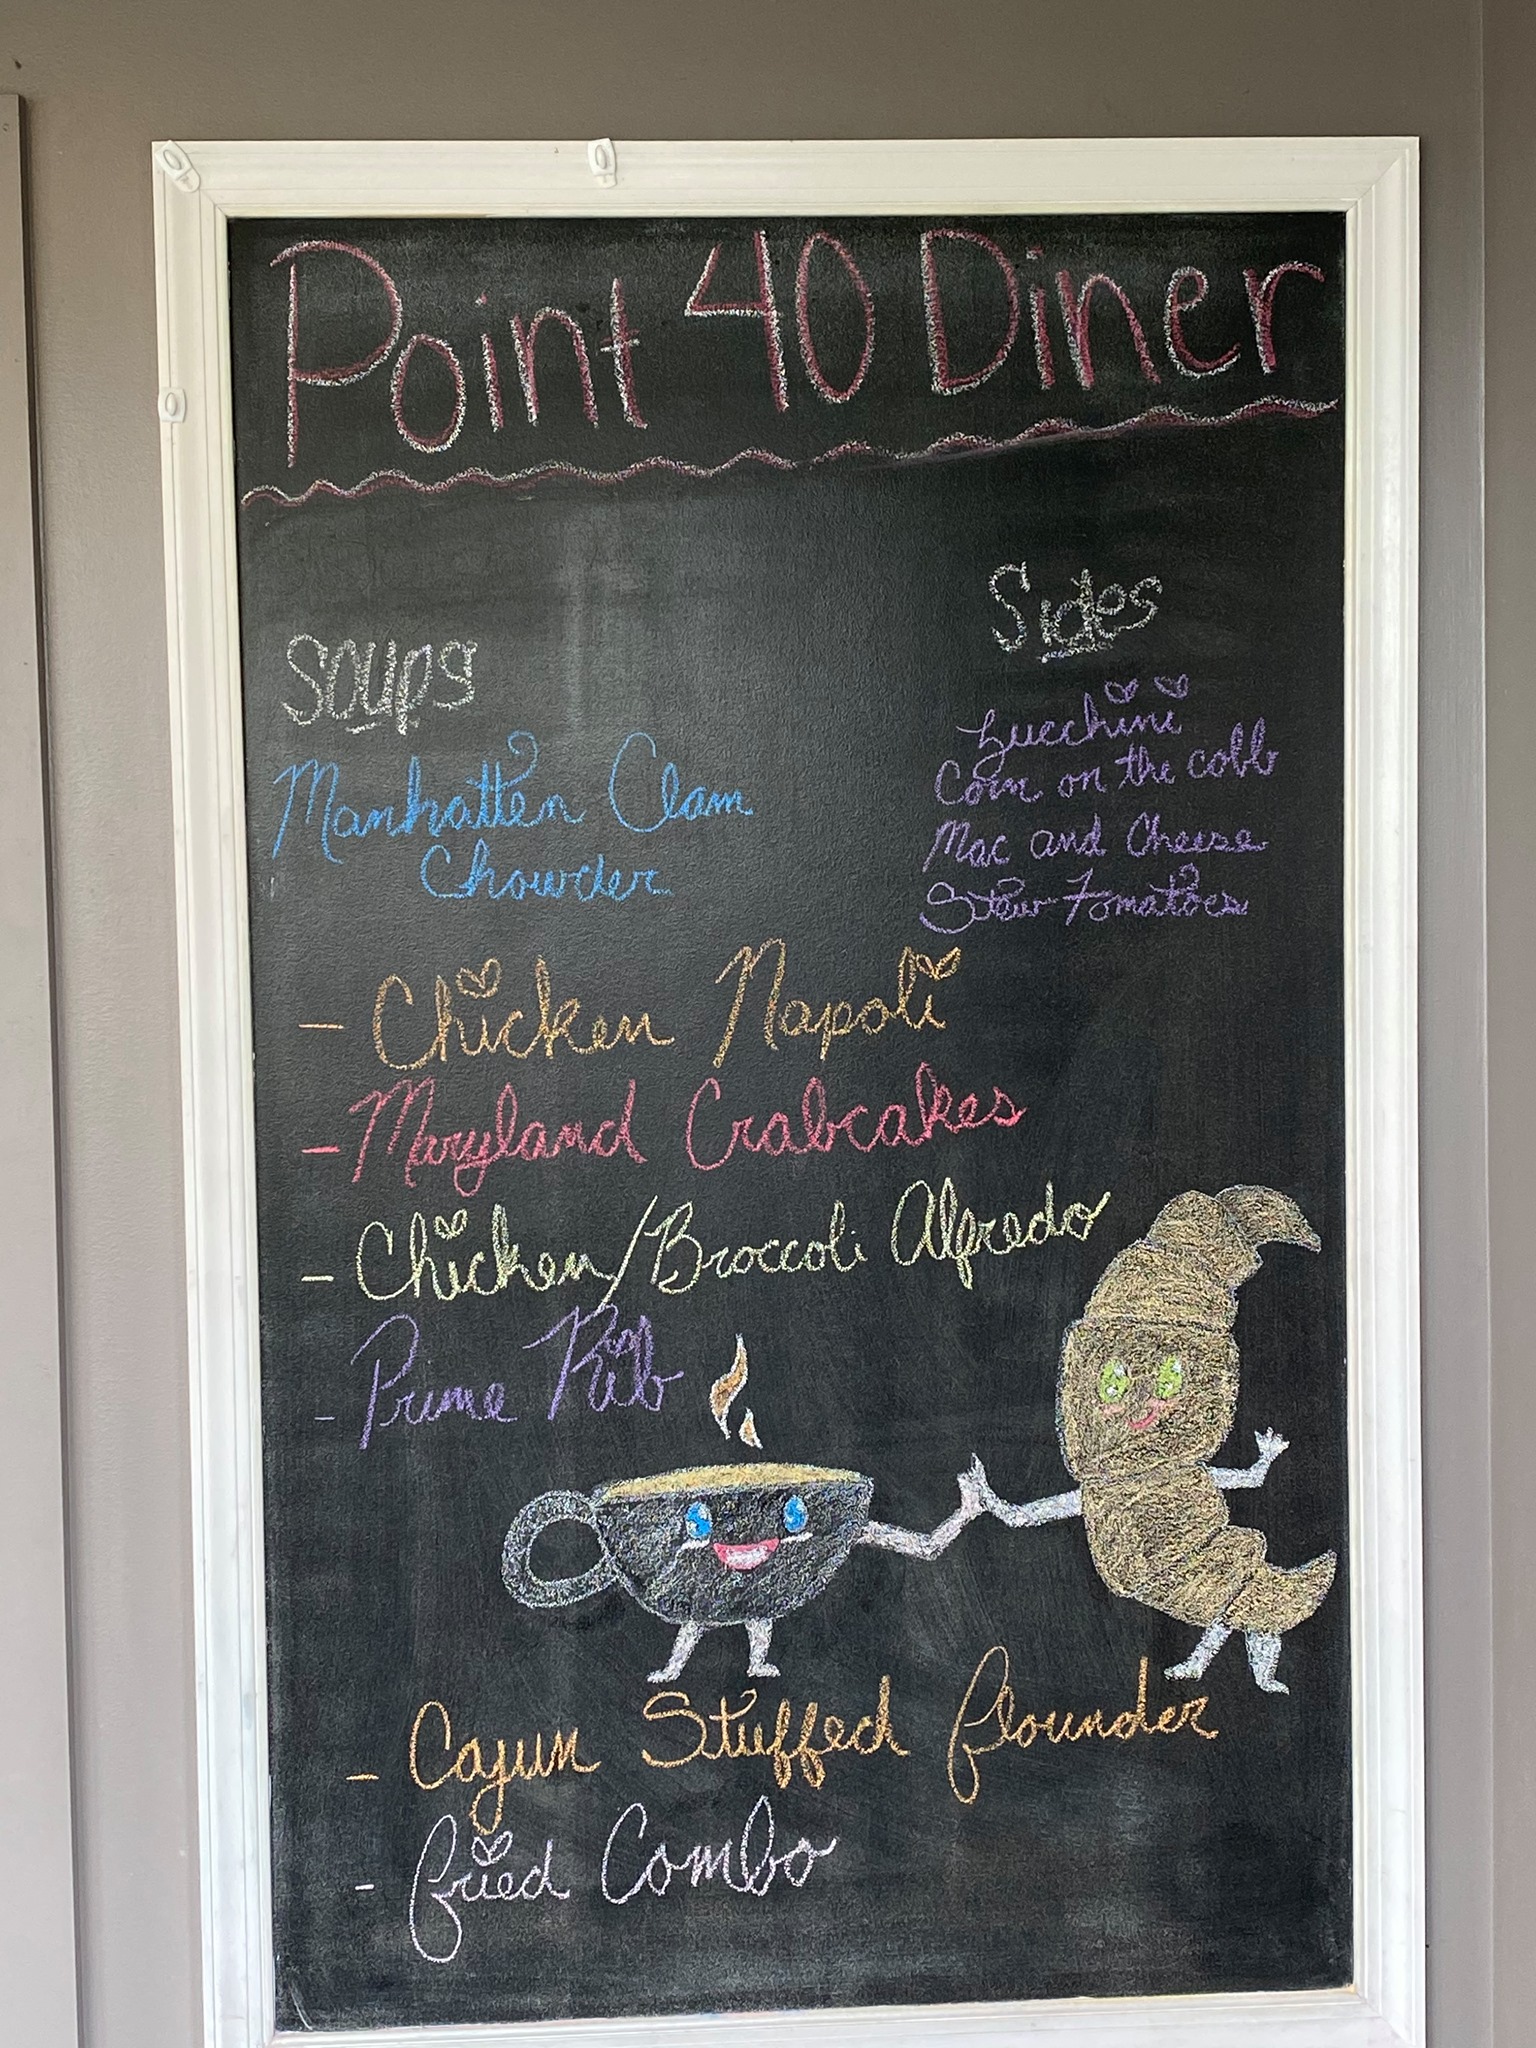 Point 40 Diner
Soups
Manhatten Clam
Chowder
Sides
Zucchini
Corn on the cobb
Mac and Cheese
Stew Tomatoes
- Chicken Napoli
- Maryland Crabcakes
- Chicken/Broccoli Alfredo
- Prime Rib
- Cajun Stuffed flounder
- fried Combo